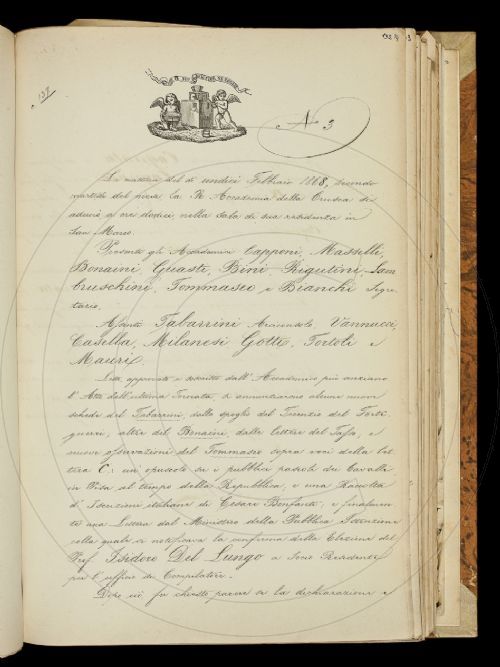 137
No 3
La mattina del dì undici Febbraio 1868, secondo
martedì del mese la R. Accademia della Crusca si
adunò a ore dodici nella sala di sua residenza in
San Marco.
Presenti gli Accademici Capponi, Masselli
Bonaini, Guasti, Bini, Rigutini, Lam
bruschini, Tommaseo e Bianchi Segre
tario.
Assenti Tabarrini Arciconsolo, Vannucci,
Casella, Milanesi Gotti, Tortoli e
Mauri.
Letto approvato e soscritto dall'Accademico più anziano
l'Atto dell'ultima tornata, si annunziarono alcune nuove
schede del Tabarrini, dallo spoglio del Terenzio del Forti
guerri, altre del Bonaini, dalle Lettere del Tasso, e
nuove osservazioni del Tommaseo sopra voci della let
tera C: un opuscolo su i pubblici passeli dei Cavalli
in Pisa al tempo della Repubblica, e una Raccolta
d'Iscrizioni italiane di Cesare Bonfanti, e finalmen
te una Lettera del Ministro della Pubblica Istruzione
colla quale si notificava la conferma della Elezione del
Prof. Isidoro Del Lungo a Socio Residente
per l'ufficio di Compilatore.
Dopo ciò fu chiesto parere se la dichiarazione e